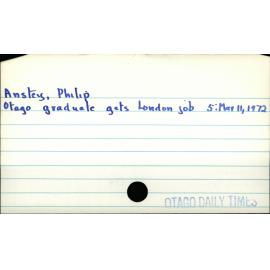 Anstey, Philip
Otago graduate gets London job 5: Mar 11, 1972
OTAGO DAILY TIMES